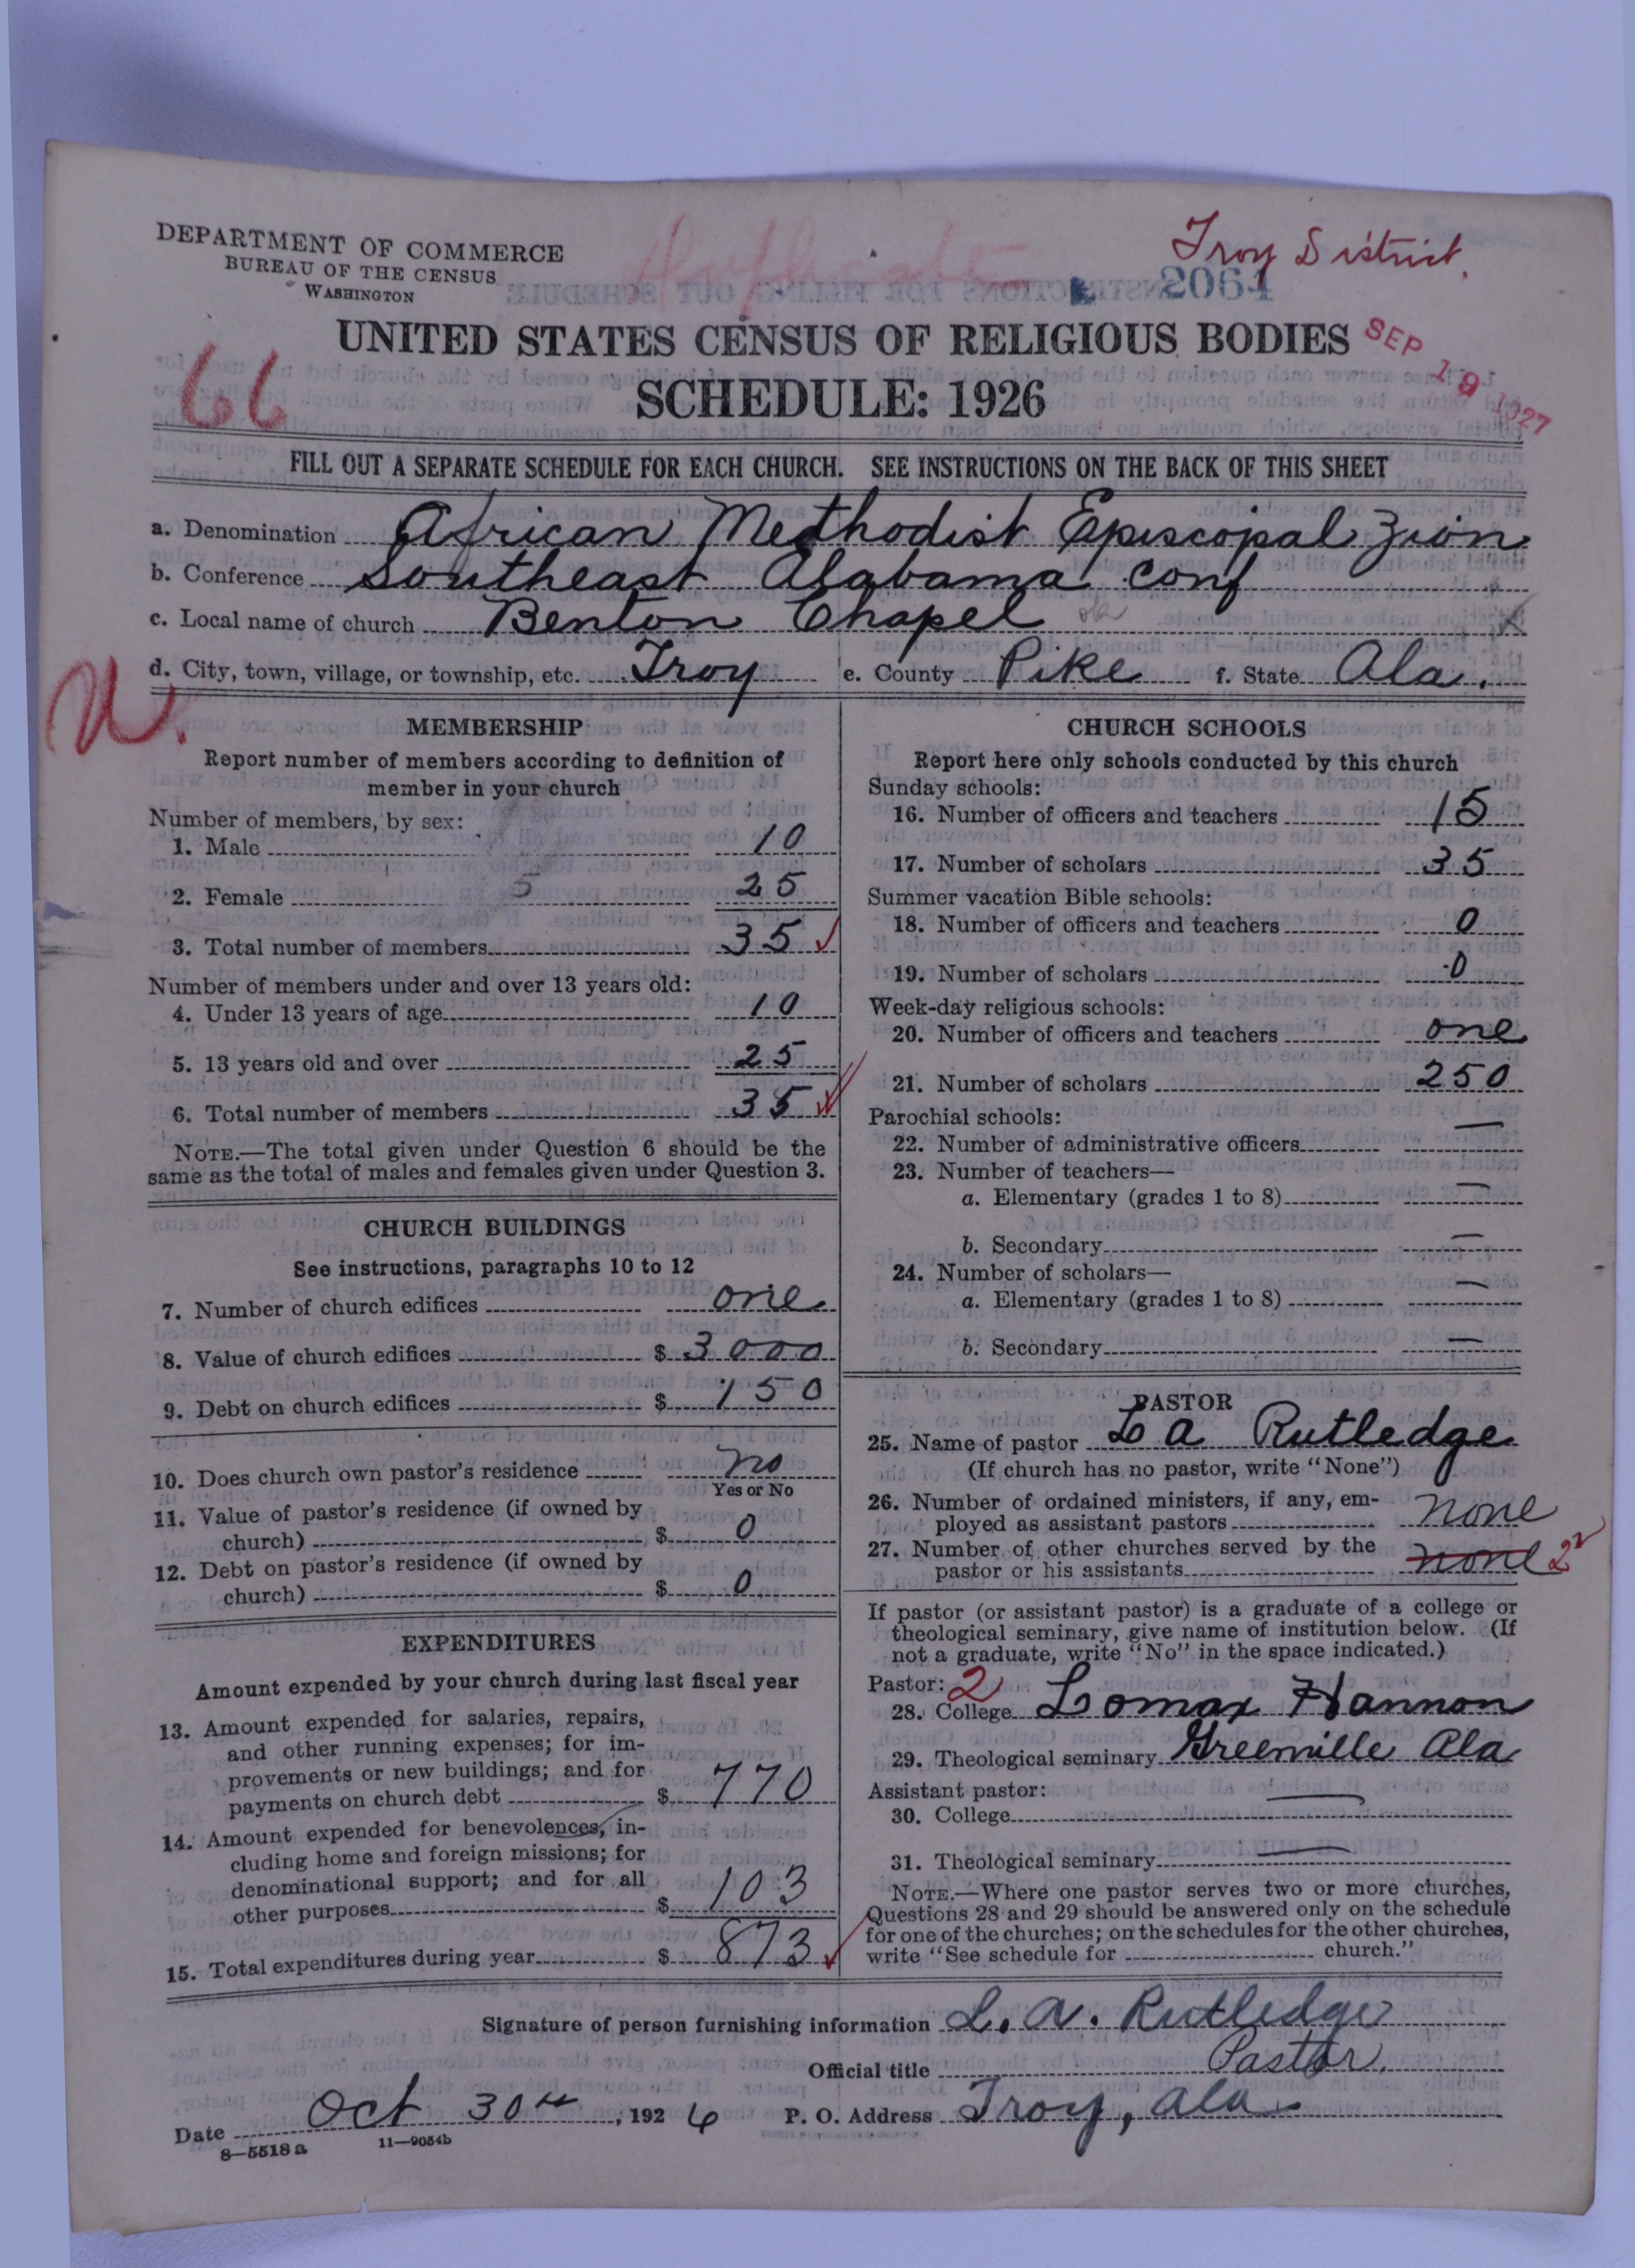 DEPARTMENT OF COMMERCE
BUREAU OF THE CENSUS
WASHINGTON
Troy District.
2061
UNITED STATES CENSUS OF RELIGIOUS BODIES
SCHEDULE: 1926
SEP 19 1927
66
FILL OUT A SEPARATE SCHEDULE FOR EACH CHURCH. SEE INSTRUCTIONS ON THE BACK OF THIS SHEET
a. Denomination African Methodist Episcopal Zion
b. Conference Southeast Alabama Conf
c. Local name of church Benton Chapel
d. City, town, village, or township, etc. Troy e. County Pike f. State Ala.
MEMBERSHIP
Report number of members according to definition of
member in your church
Number of members, by sex:
1. Male 10
2. Female 5 25
3. Total number of members 35
Number of members under and over 13 years old:
4. Under 13 years of age 10
5. 13 years old and over 25
6. Total number of members 35
NOTE.—The total given under Question 6 should be the
same as the total of males and females given under Question 3.
CHURCH BUILDINGS
See instructions, paragraphs 10 to 12
7. Number of church edifices one
8. Value of church edifices $ 3000
9. Debt on church edifices $ 150
10. Does church own pastor's residence no
Yes or No
11. Value of pastor's residence (if owned by
church) $ 0
12. Debt on pastor's residence (if owned by
church) $ 0
EXPENDITURES
Amount expended by your church during last fiscal year
13. Amount expended for salaries, repairs,
and other running expenses; for im-
provements or new buildings; and for
payments on church debt $ 770
14. Amount expended for benevolences, in-
cluding home and foreign missions; for
denominational support; and for all
other purposes $ 103
15. Total expenditures during year $ 873
CHURCH SCHOOLS
Report here only schools conducted by this church
Sunday schools:
16. Number of officers and teachers 15
17. Number of scholars 35
Summer vacation Bible schools:
18. Number of officers and teachers 0
19. Number of scholars 0
Week-day religious schools:
20. Number of officers and teachers one
21. Number of scholars 250
Parochial schools:
22. Number of administrative officers —
23. Number of teachers—
a. Elementary (grades 1 to 8) —
b. Secondary —
24. Number of scholars—
a. Elementary (grades 1 to 8) —
b. Secondary —
PASTOR
25. Name of pastor L a Rutledge
(If church has no pastor, write "None")
26. Number of ordained ministers, if any, em-
ployed as assistant pastors none
27. Number of other churches served by the
pastor or his assistants none 2
If pastor (or assistant pastor) is a graduate of a college or
theological seminary, give name of institution below. (If
not a graduate, write "No" in the space indicated.)
Pastor: 2
28. College Lomax Hannon
29. Theological seminary Greenville Ala
Assistant pastor:
30. College —
31. Theological seminary —
NOTE.—Where one pastor serves two or more churches,
Questions 28 and 29 should be answered only on the schedule
for one of the churches; on the schedules for the other churches,
write "See schedule for church."
Signature of person furnishing information L. A. Rutledge
Official title Pastor.
Date Oct 30th, 1926 P. O. Address Troy, Ala
8—5518a 11—9054b